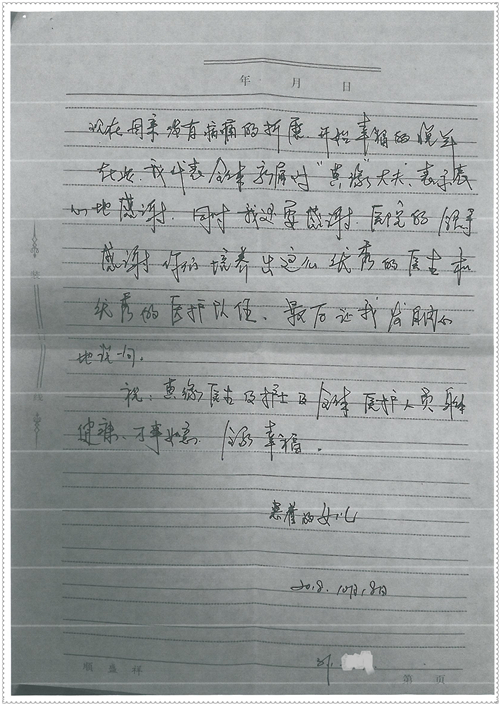 年 月 日
现在母亲没有病痛的折磨,开始幸福的晚年
在此我代表全体亲属对“真缘”大夫、表示衷
心地感谢.同时我还要感谢.医院的领导
感谢你们培养出这么优秀的医生和
优秀的医护队伍、最后让我发自内心
地说一句.
祝:真缘医生及护士及全体医护人员身体
健康、万事如意、合家幸福.
患者的女儿
2018.10月18日
刘
顺盛祥
第 页